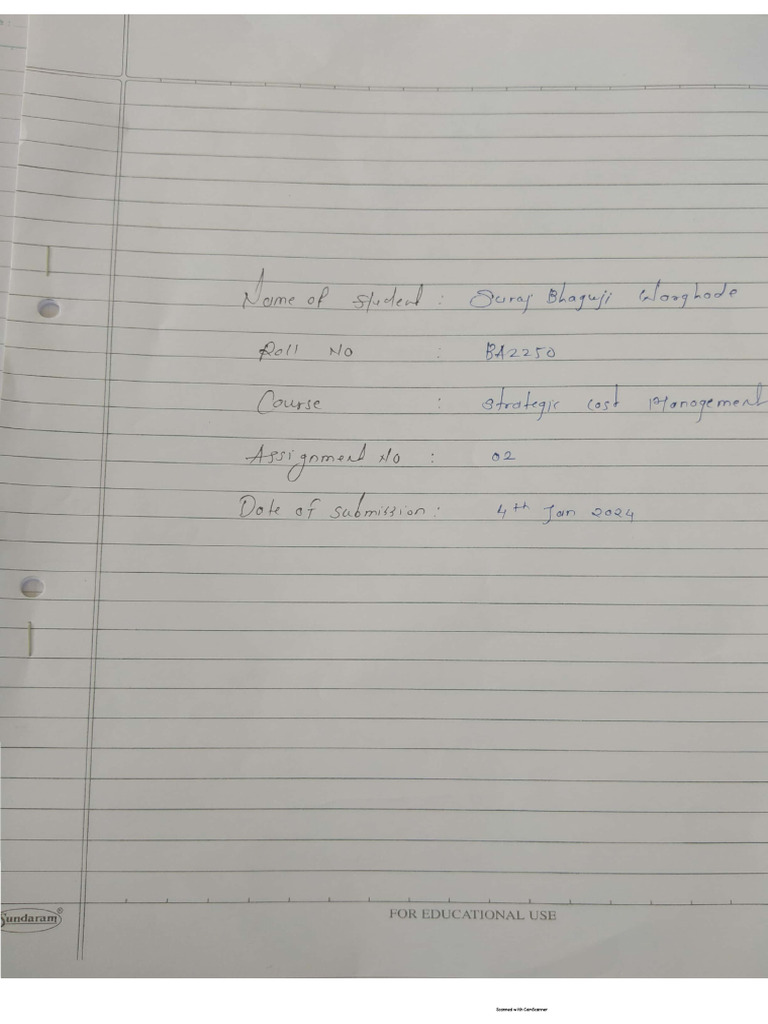 Name of student : Suraj Bhaguji Warghade
Roll No : BA2250
Course : Strategic Cost Management
Assignment No : 02
Date of submission : 4th Jan 2024
Sundaram®
FOR EDUCATIONAL USE
Scanned with CamScanner